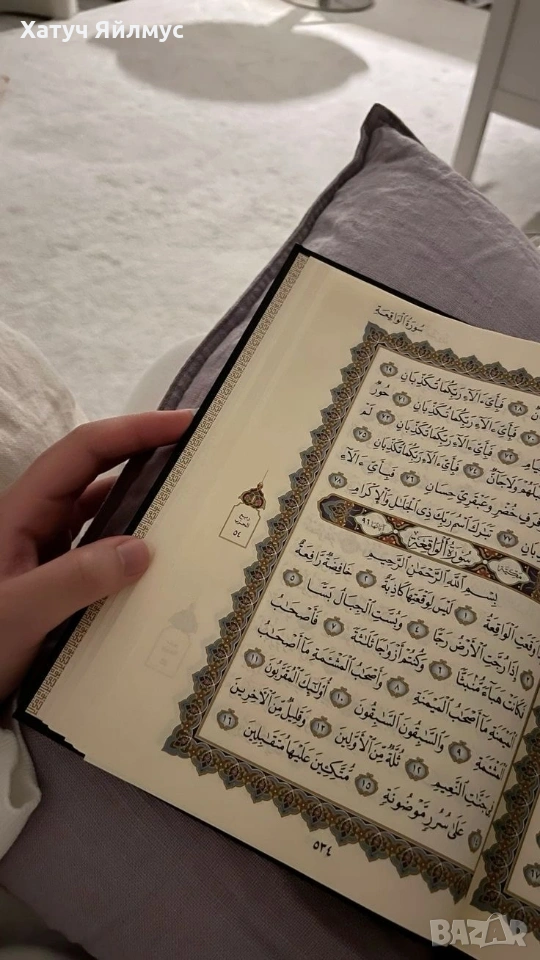 Хатуч Яйлмус
سُورَةُ الوَاقِعَةِ
٦٨ فَبِأَيِّ ءَالَآءِ رَبِّكُمَا تُكَذِّبَانِ
٧٠ فَبِأَيِّ ءَالَآءِ رَبِّكُمَا تُكَذِّبَانِ ٧١ حُورٌ
٧٢ فَبِأَيِّ ءَالَآءِ رَبِّكُمَا تُكَذِّبَانِ ٧٣ لَمْ
وَلَا جَآنٌّ ٧٤ فَبِأَيِّ ءَالَآءِ رَبِّكُمَا تُكَذِّبَانِ ٧٥
خُضْرٍ وَعَبْقَرِيٍّ حِسَانٍ ٧٦ فَبِأَيِّ ءَالَآءِ
٧٧ تَبَٰرَكَ ٱسْمُ رَبِّكَ ذِى ٱلْجَلَٰلِ وَٱلْإِكْرَامِ ٧٨
مَكِّيَّة سُورَةُ الوَاقِعَةِ آيَاتُهَا ٩٦
بِسْمِ ٱللَّهِ ٱلرَّحْمَٰنِ ٱلرَّحِيمِ
وَقَعَتِ ٱلْوَاقِعَةُ ١ لَيْسَ لِوَقْعَتِهَا كَاذِبَةٌ ٢ خَافِضَةٌ رَّافِعَةٌ
٣ إِذَا رُجَّتِ ٱلْأَرْضُ رَجًّا ٤ وَبُسَّتِ ٱلْجِبَالُ بَسًّا ٥
فَكَانَتْ هَبَآءً مُّنۢبَثًّا ٦ وَكُنتُمْ أَزْوَٰجًا ثَلَٰثَةً ٧ فَأَصْحَٰبُ
ٱلْمَيْمَنَةِ مَآ أَصْحَٰبُ ٱلْمَيْمَنَةِ ٨ وَأَصْحَٰبُ ٱلْمَشْـَٔمَةِ مَآ أَصْحَٰبُ
ٱلْمَشْـَٔمَةِ ٩ وَٱلسَّٰبِقُونَ ٱلسَّٰبِقُونَ ١٠ أُوْلَٰٓئِكَ ٱلْمُقَرَّبُونَ ١١
جَنَّٰتِ ٱلنَّعِيمِ ١٢ ثُلَّةٌ مِّنَ ٱلْأَوَّلِينَ ١٣ وَقَلِيلٌ مِّنَ ٱلْأَخِرِينَ
عَلَىٰ سُرُرٍ مَّوْضُونَةٍ ١٥ مُّتَّكِـِٔينَ عَلَيْهَا مُتَقَٰبِلِينَ ١٦
رُبع الحزب ٥٤
٥٣٤
BAZAR